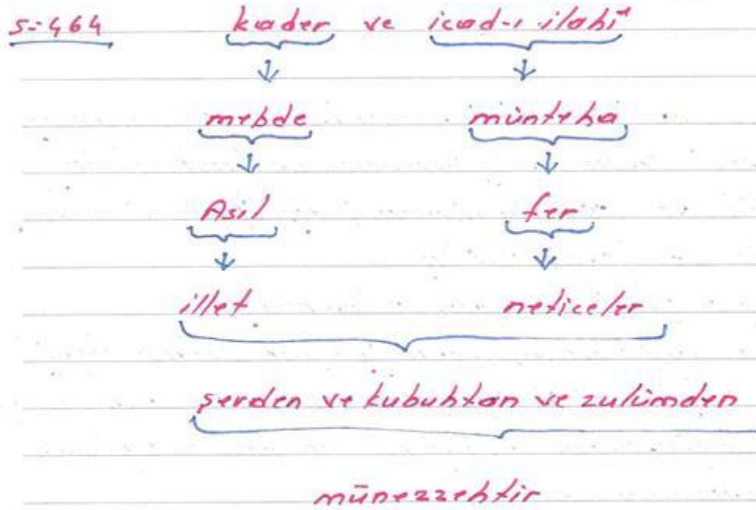 s=464 kader ve icad-ı ilahi
mebde münteha
Asıl fer
illet neticeler
şerden ve kubuhtan ve zulümden
münezzehtir